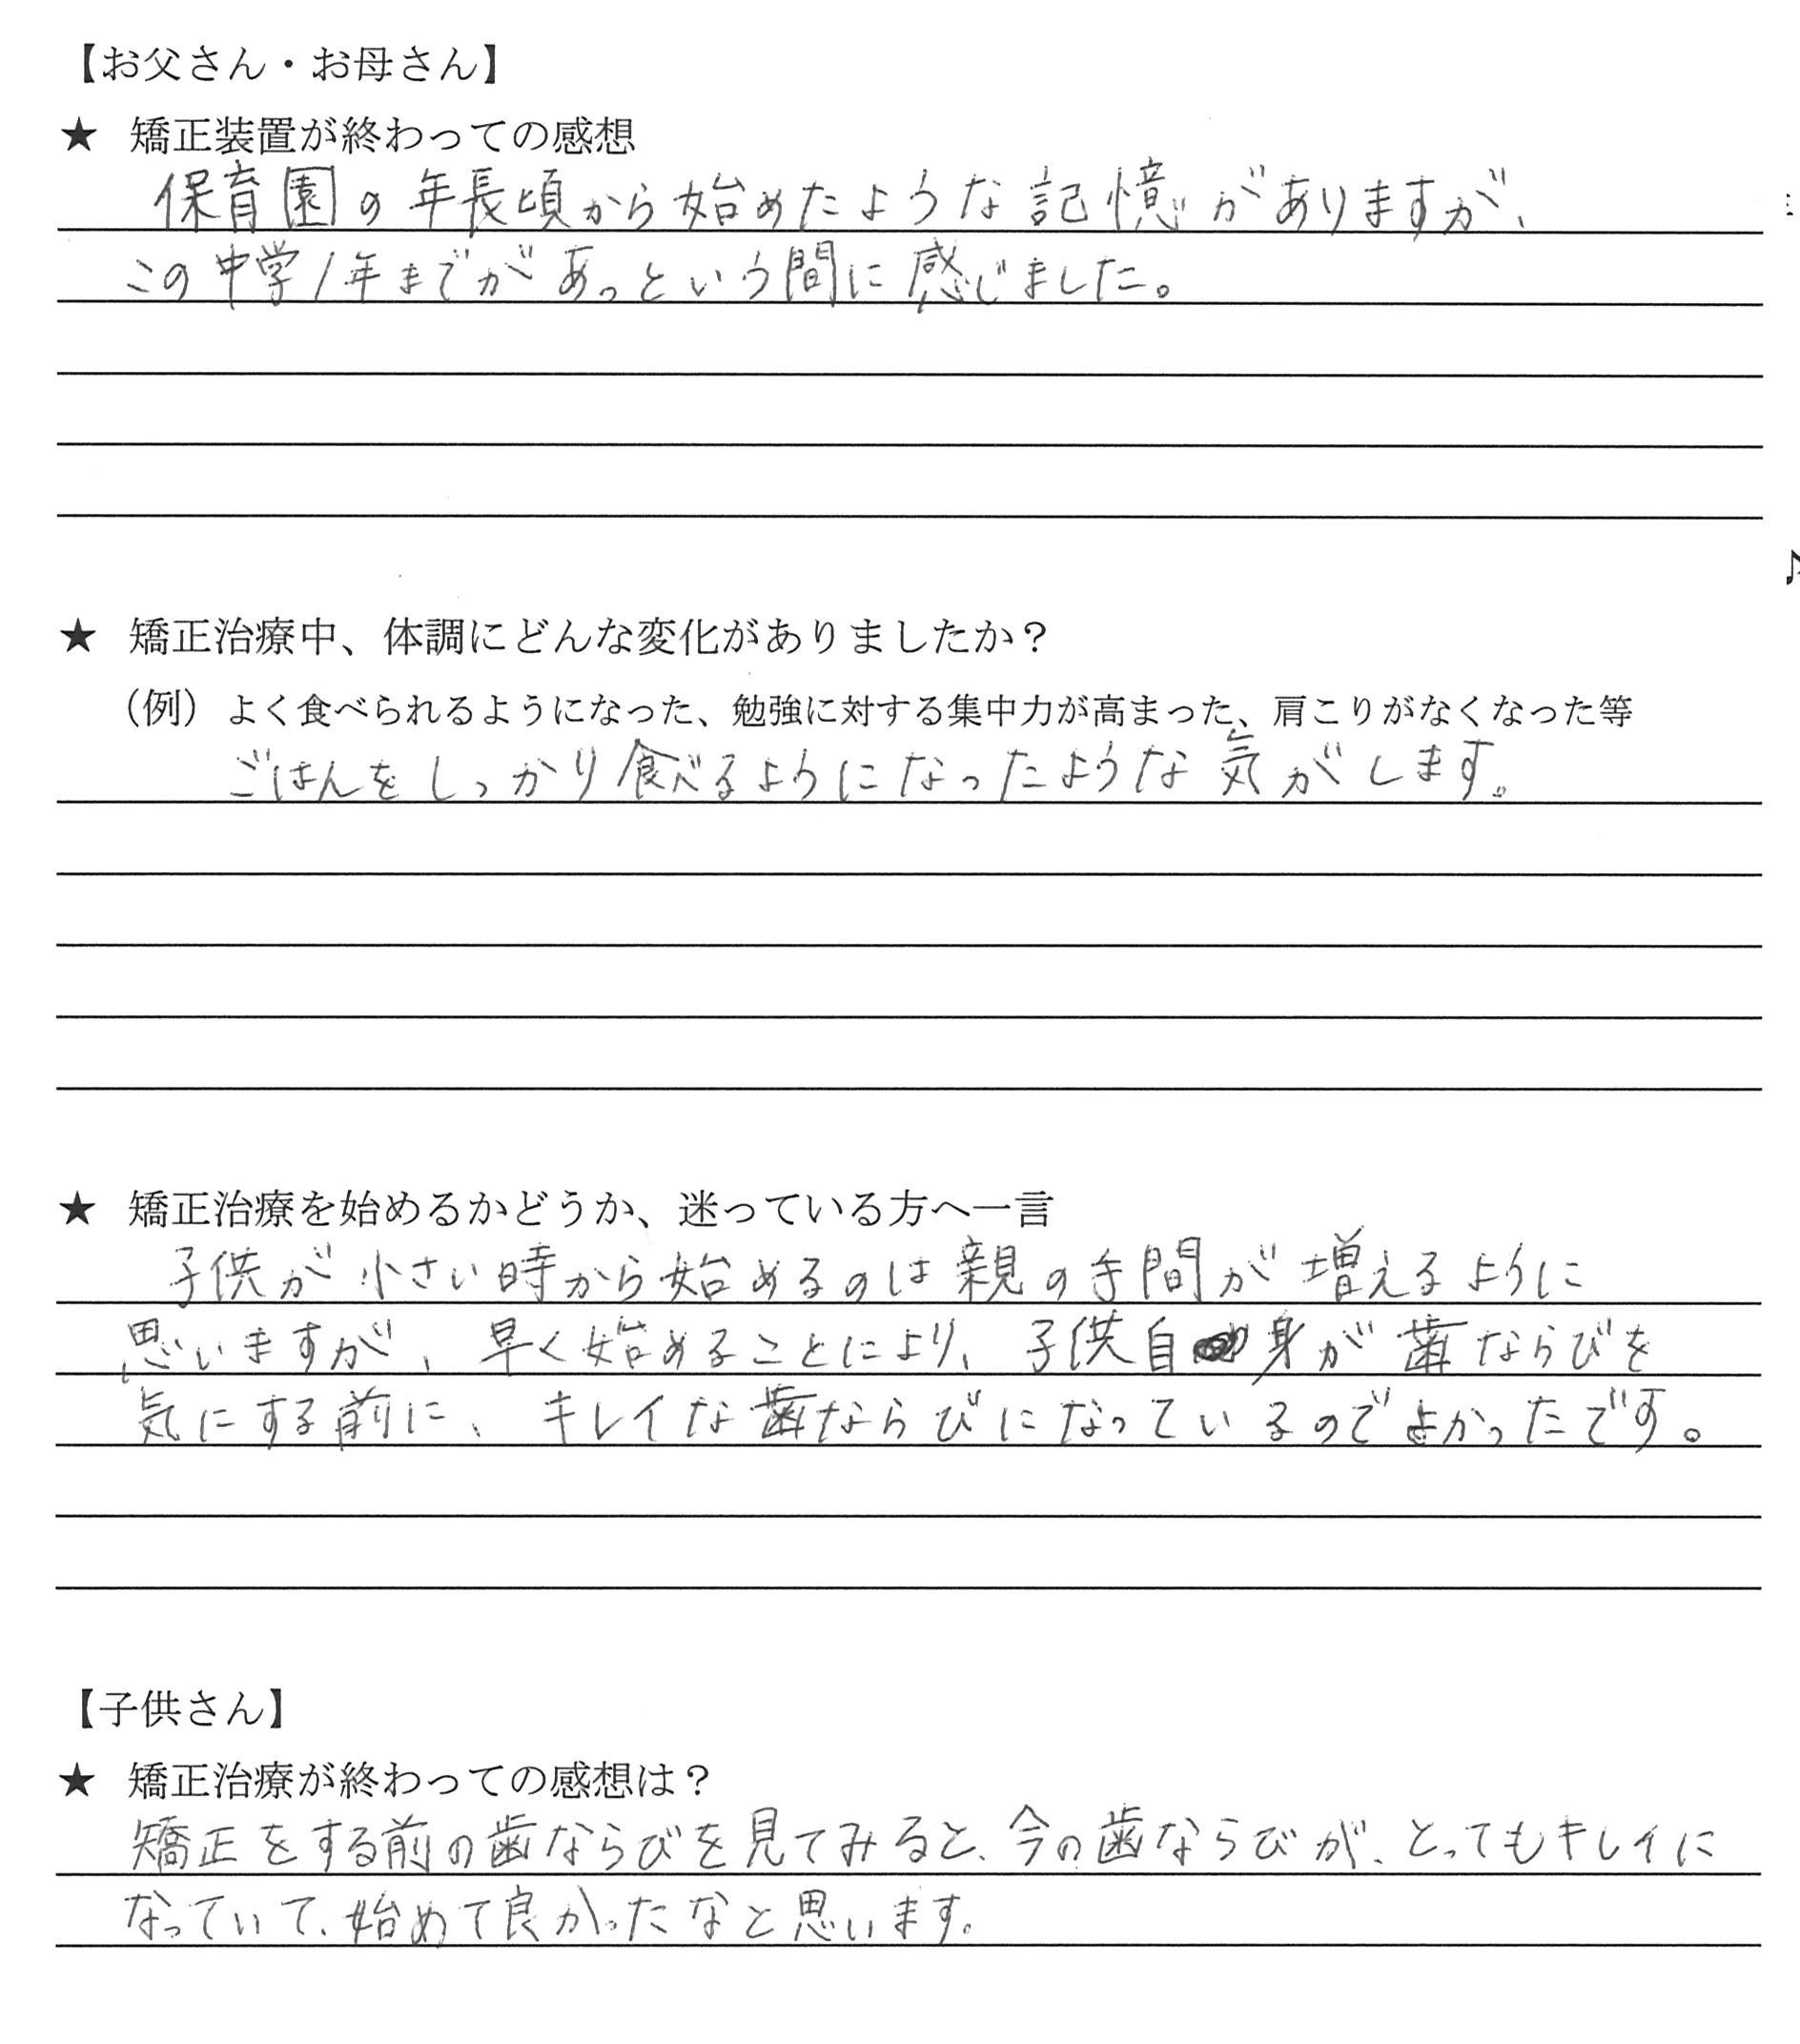 【お父さん・お母さん】
★ 矯正装置が終わっての感想
保育園の年長頃から始めたような記憶がありますが、
この中学1年までがあっという間に感じました。
♪
★ 矯正治療中、体調にどんな変化がありましたか？
（例）よく食べられるようになった、勉強に対する集中力が高まった、肩こりがなくなった等
ごはんをしっかり食べるようになったような気がします。
★ 矯正治療を始めるかどうか、迷っている方へ一言
子供が小さい時から始めるのは親の手間が増えるように
思いますが、早く始めることにより、子供自身が歯ならびを
気にする前に、キレイな歯ならびになっているのでよかったです。
【子供さん】
★ 矯正治療が終わっての感想は？
矯正をする前の歯ならびを見てみると、今の歯ならびが、とってもキレイに
なっていて、始めて良かったなと思います。